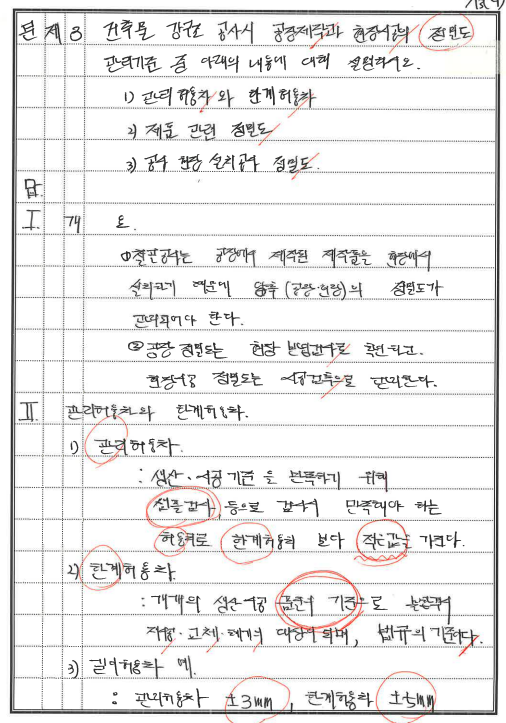 문제 3 건축물 강구조 공사시 공장제작과 현장시공의 정밀도
관리기준 중 아래의 내용에 대해 설명하시오.
1) 관리허용차 와 한계허용차
2) 제품 관련 정밀도
3) 공사 현장 설치공사 정밀도.
답
I. 개 요.
① 철골공사는 공장에서 제작된 제작물을 현장에서
설치하기 때문에 양측(공장·현장)의 정밀도가
관리되어야 한다.
② 공장 정밀도는 현장 반입검사로 확인하고.
현장시공 정밀도는 시공건축으로 관리한다.
II. 관리허용차와 한계허용차.
1) 관리허용차.
: 생산·시공기준을 만족하기 위해
샘플검사 등으로 검사시 만족해야 하는
허용치로 한계허용치 보다 작은값을 가진다.
2) 한계허용차
: 개개의 생산·시공 품질의 기준으로 불합격시
재형·교체·폐기의 대상이 되며, 법규의 기준이다.
3) 길이허용차 예.
: 관리허용차 ±3mm, 한계허용차 ±5mm